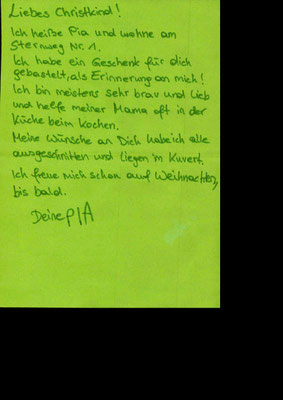 Liebes Christkind!
Ich heiße Pia und wohne am
Sternweg Nr. 1.
Ich habe ein Geschenk für dich
gebastelt, als Erinnerung an mich!
Ich bin meistens sehr brav und lieb
und helfe meiner Mama oft in der
Küche beim Kochen.
Meine Wünsche an Dich habe ich alle
ausgeschnitten und liegen im Kuvert.
Ich freue mich schon auf Weihnachten,
bis bald.
Deine PIA